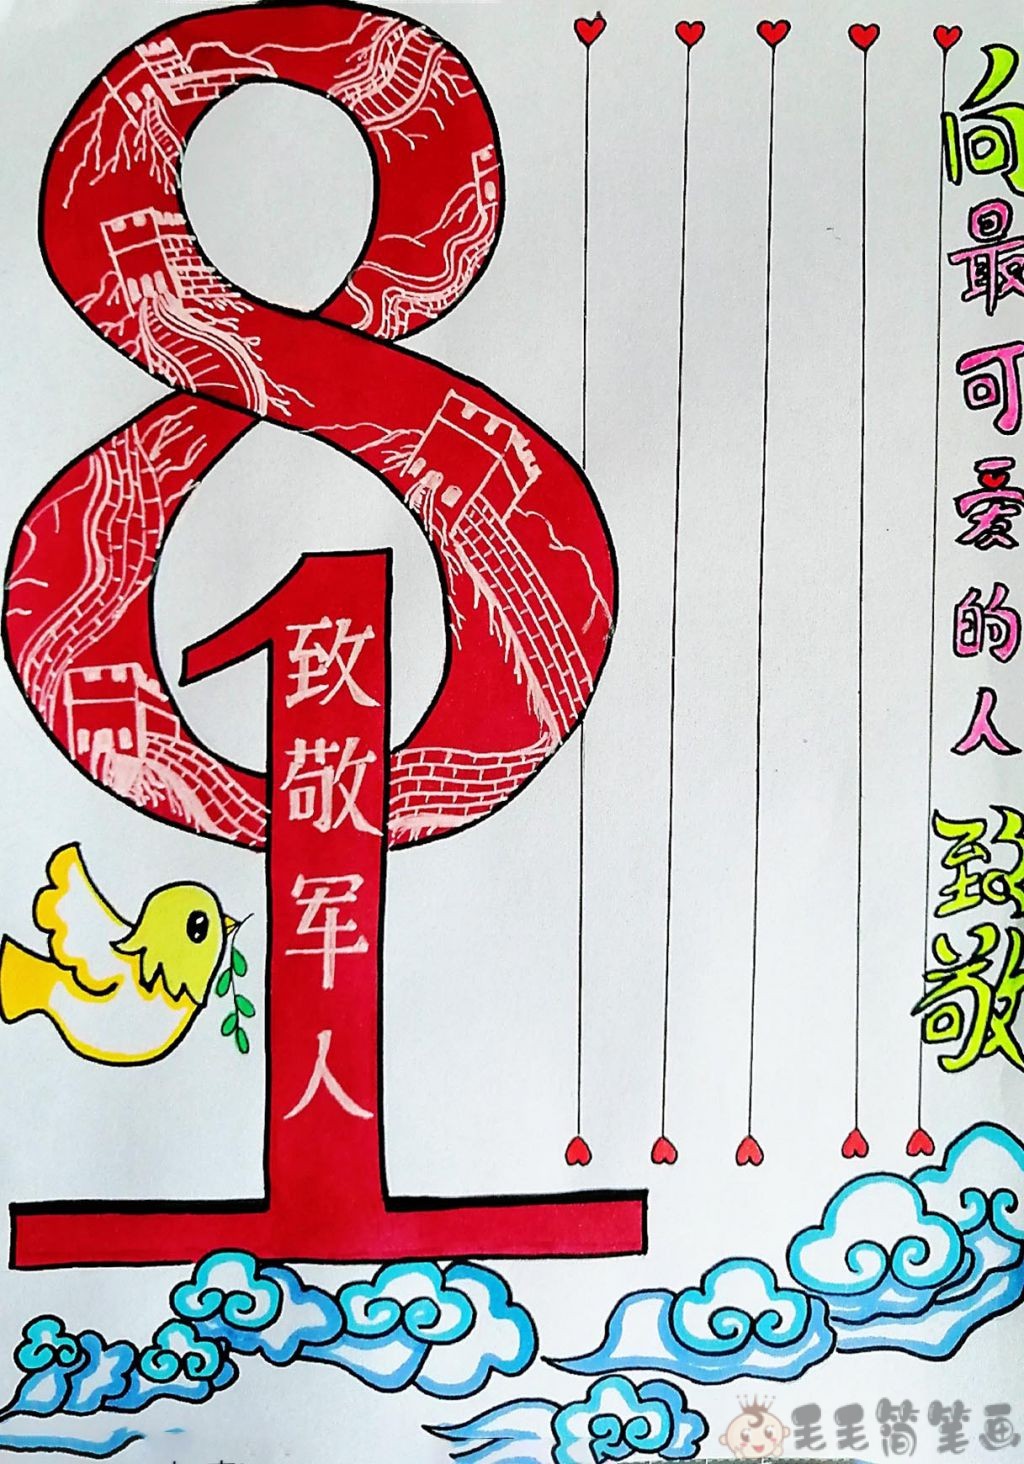 81
致敬军人
向最可爱的人 致敬
毛毛简笔画